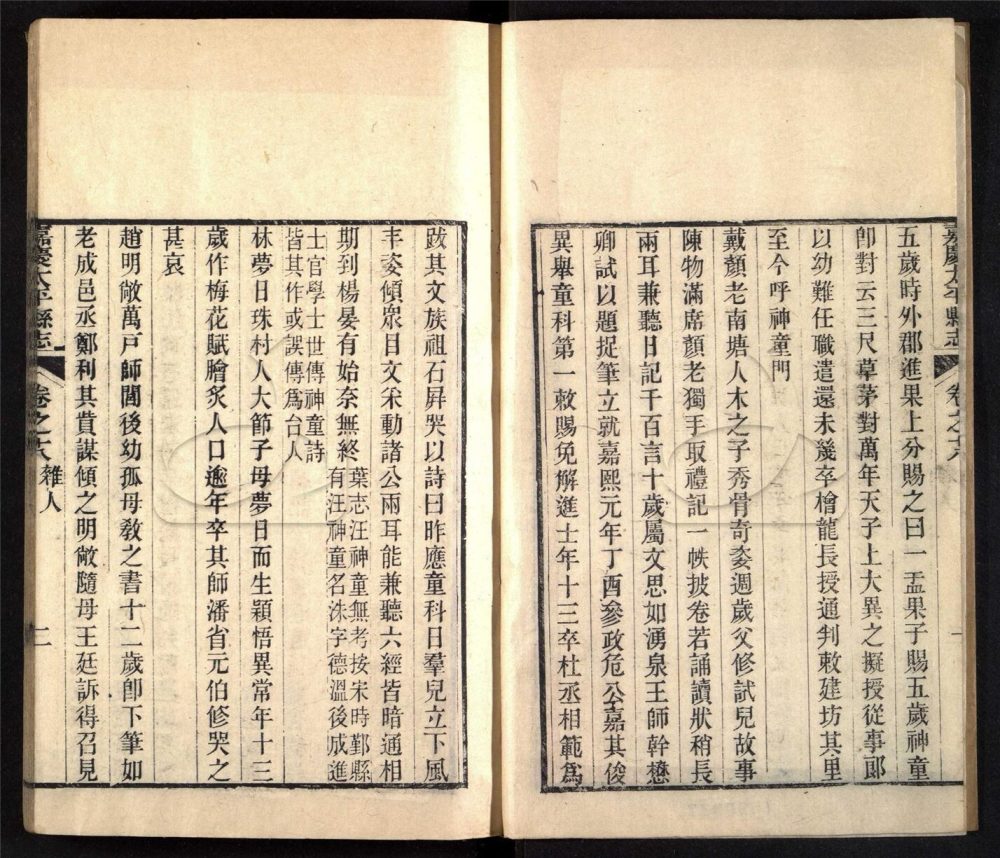 嘉慶太平縣志
卷之十八
五歲時外郡進果上分賜之曰一盂果子賜五歲神童
卽對云三尺草茅對萬年天子上大異之擬授從事郞
以幼難任職遣還未幾卒檜龍長授通判敕建坊其里
至今呼神童門
戴顏老南塘人木之子秀骨奇姿週歲父修試兒故事
陳物滿席顏老獨手取禮記一帙披卷若誦讀狀稍長
兩耳兼聽日記千百言十歲屬文思如湧泉王師幹懋
卿試以題捉筆立就嘉熙元年丁酉參政危公嘉其俊
異舉童科第一敕賜免解進士年十三卒杜丞相範爲
跋其文族祖石屛哭以詩曰昨應童科日羣兒立下風
丰姿傾眾目文宋動諸公兩耳能兼聽六經皆暗通相
期到楊晏有始奈無終葉志汪神童無考按宋時鄞縣
有汪神童名洙字德溫後成進
士官學士世傳神童詩
皆其作或誤傳爲台人
林夢日珠村人大節子母夢日而生穎悟異常年十三
歲作梅花賦膾炙人口逾年卒其師潘省元伯修哭之
甚哀
趙明敞萬戸師閭後幼孤母敎之書十二歲卽下筆如
老成邑丞鄭利其貲謀傾之明敞隨母王廷訴得召見
嘉慶太平縣志
卷之十八 雜人
二